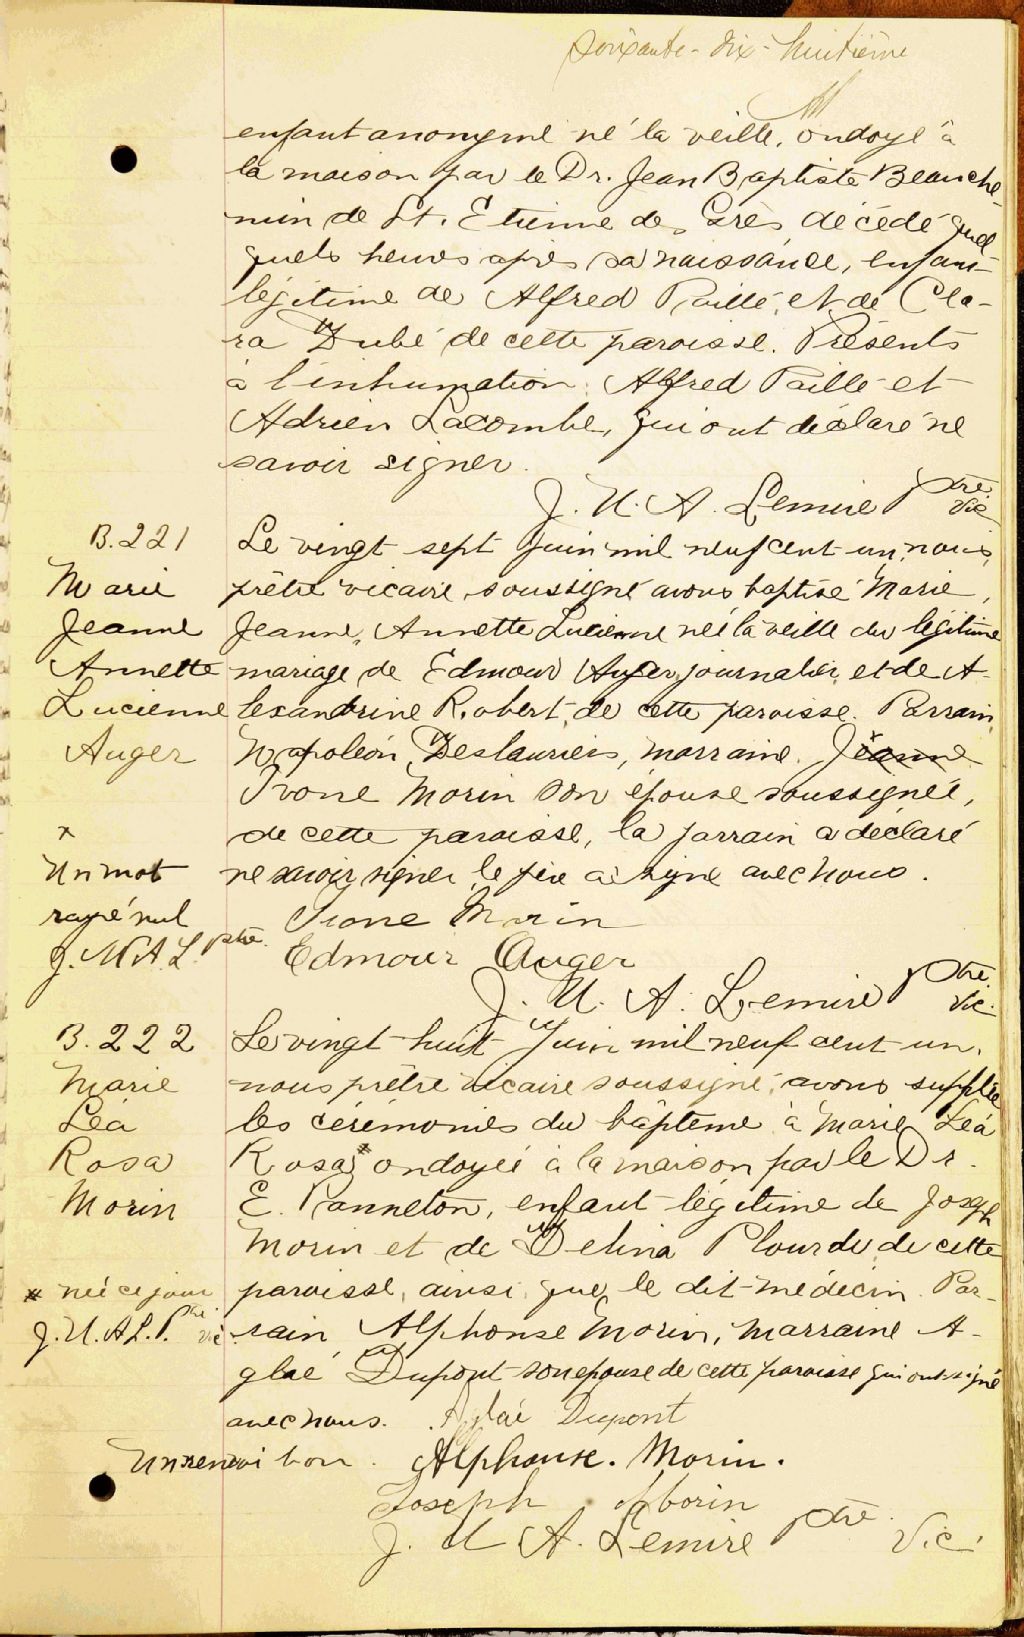 soixante-dix-huitième
enfant anonyme né la veille, ondoyé à
la maison par le Dr. Jean Baptiste Beauche-
min de St. Etienne des Grès décédé quel
quels heures après sa naissance, enfant
légitime de Alfred Paillé, et de Cla-
ra Dubé de cette paroisse. Présents
à l'inhumation. Alfred Paillé et
Adrien Lacombe, qui ont déclaré ne
savoir signer.
J. U. A. Lemire Ptre. Vic
B.221
Marie
Jeanne
Annette
Lucienne
Auger
Le vingt sept Juin mil neuf cent un, nous,
prêtre vicaire, soussigné avons baptisé Marie,
Jeanne, Annette Lucienne née la veille du légitime
mariage de Edmour Auger, journalier, et de A-
lexandrine Robert, de cette paroisse. Parrain,
Napoléon Deslauriers, marraine. Jeanne
Ivone Morin son épouse soussignée,
de cette paroisse, la parrain a déclaré
ne savoir signer, le père a signé avec nous.
x
Un mot
rayé nul
J. U. A. L. ptre.
Ivone Morin
Edmour Auger
J. U. A. Lemire Ptre. Vic.
B. 222
Marie
Léa
Rosa
Morin
Le vingt-huit Juin mil neuf cent un,
nous prêtre vicaire soussigné, avons supplée
les cérémonies du bâptême à Marie Léa
Rosa * ondoyée à la maison par le Dr.
E. Panneton, enfant légitime de Joseph
Morin et de Delina Plourde, de cette
paroisse, ainsi que le dit médecin. Par-
rain, Alphonse Morin, marraine A-
glaé Dupont son epouse de cette paroisse qui ont signé
avec nous.
* née ce jour
J. U. A L. Ptre. Vic
Un renvoi bon.
Aglaé Dupont
Alphonse. Morin.
Joseph Morin
J. U A. Lemire Ptre. Vic.